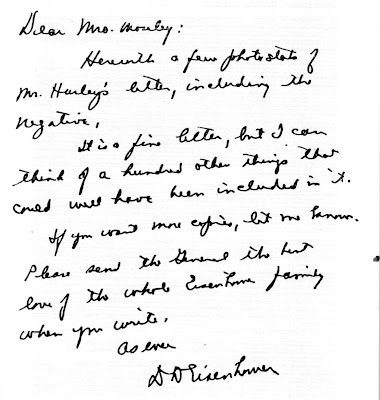 Dear Mrs. Moseley:
Herewith a few photostats of
Mr. Hurley's letter, including the
negative.
It is a fine letter, but I can
think of a hundred other things that
could well have been included in it.
If you want more copies, let me know.
Please send the General the best
love of the whole Eisenhower family
when you write.
As ever
DDEisenhower